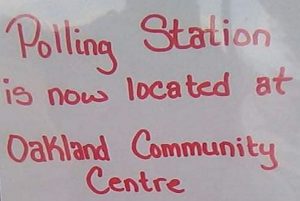 Polling Station
is now located at
Oakland Community
Centre